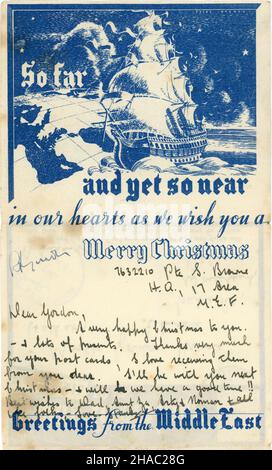 So far
and yet so near
in our hearts as we wish you a
Merry Christmas
7632210 Pte S. Browne
H.Q., 17 Area
M.E.F.
Dear Gordon,
A very happy Christmas to you
- & lots of presents. Thanks very much
for your post cards, I love receiving them
from you dear. I'll be with you next
Christmas - & will we have a good time!!
Best wishes to Dad, Norman & all
the folks. Love
Greetings from the Middle East
alamy
Image ID: 2HAC28G
www.alamy.com